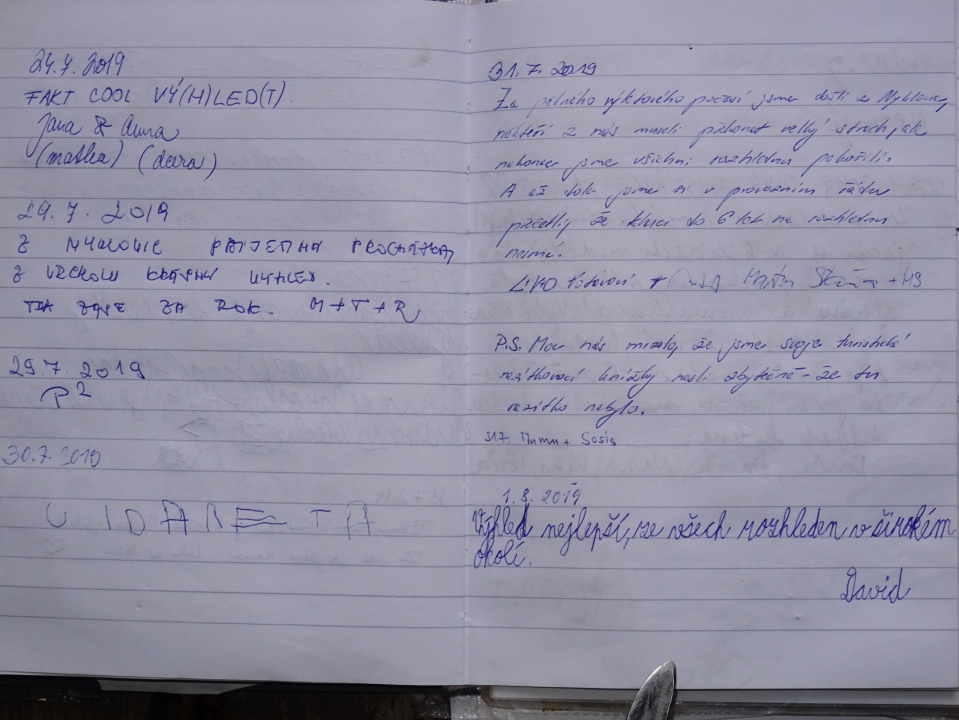 24.7. 2019
FAKT COOL VÝ(H)LED(T).
Jana & Anna
(matka) (dcera)
29.7. 2019
Z MYKLOVIC PŘÍJEMNÁ PROCHÁZKA,
Z VRCHOLU KRÁSNÝ VÝHLED.
ZASE ZA ROK. M+T+R
29.7. 2019
P²
30.7. 2019
31.7. 2019
Za pěkného výletového počasí jsme došli z
někteří z nás museli překonat velký strach, ale
nakonec jsme všichni rozhlednu pokořili.
A až dole jsme si v provozním řádu
přečetly že kluci do 6 let na rozhlednu
nesmí.
+ Martin + MS
P.S. Moc nás mrzelo, že jsme svoje turistické
razítkovací knížky nesli zbytečně - že tu
razítko nebylo.
31.7. Mumu + Sosis
1.8. 2019
Výhled nejlepší, ze všech rozhleden v širokém
okolí.
David